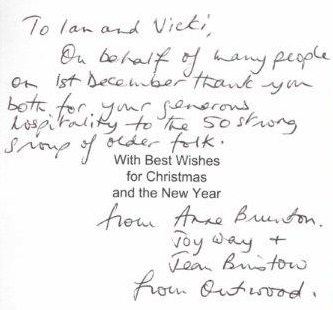 To Ian and Vicki,
On behalf of many people
on 1st December thank you
both for your generous
hospitality to the 50 strong
group of older folk.
With Best Wishes
for Christmas
and the New Year
from Anne Brunton.
Joy Way +
Jean Bristow
from Outwood.